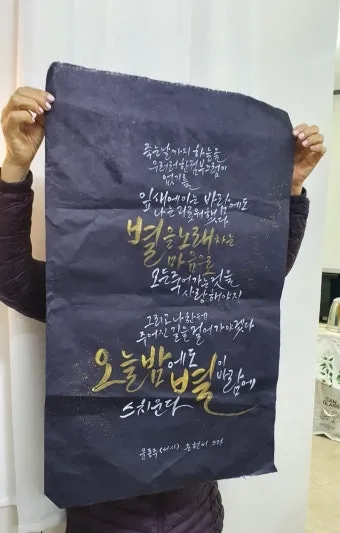 죽는날까지 하늘을
우러러 한점 부끄럼이
없기를
잎새에 이는 바람에도
나는 괴로워했다
별을 노래하는
마음으로
모든 죽어가는 것을
사랑해야지
그리고 나한테
주어진 길을 걸어가야겠다
오늘밤에도 별이 바람에
스치운다
윤동주 &lt;서시&gt; 쓰다